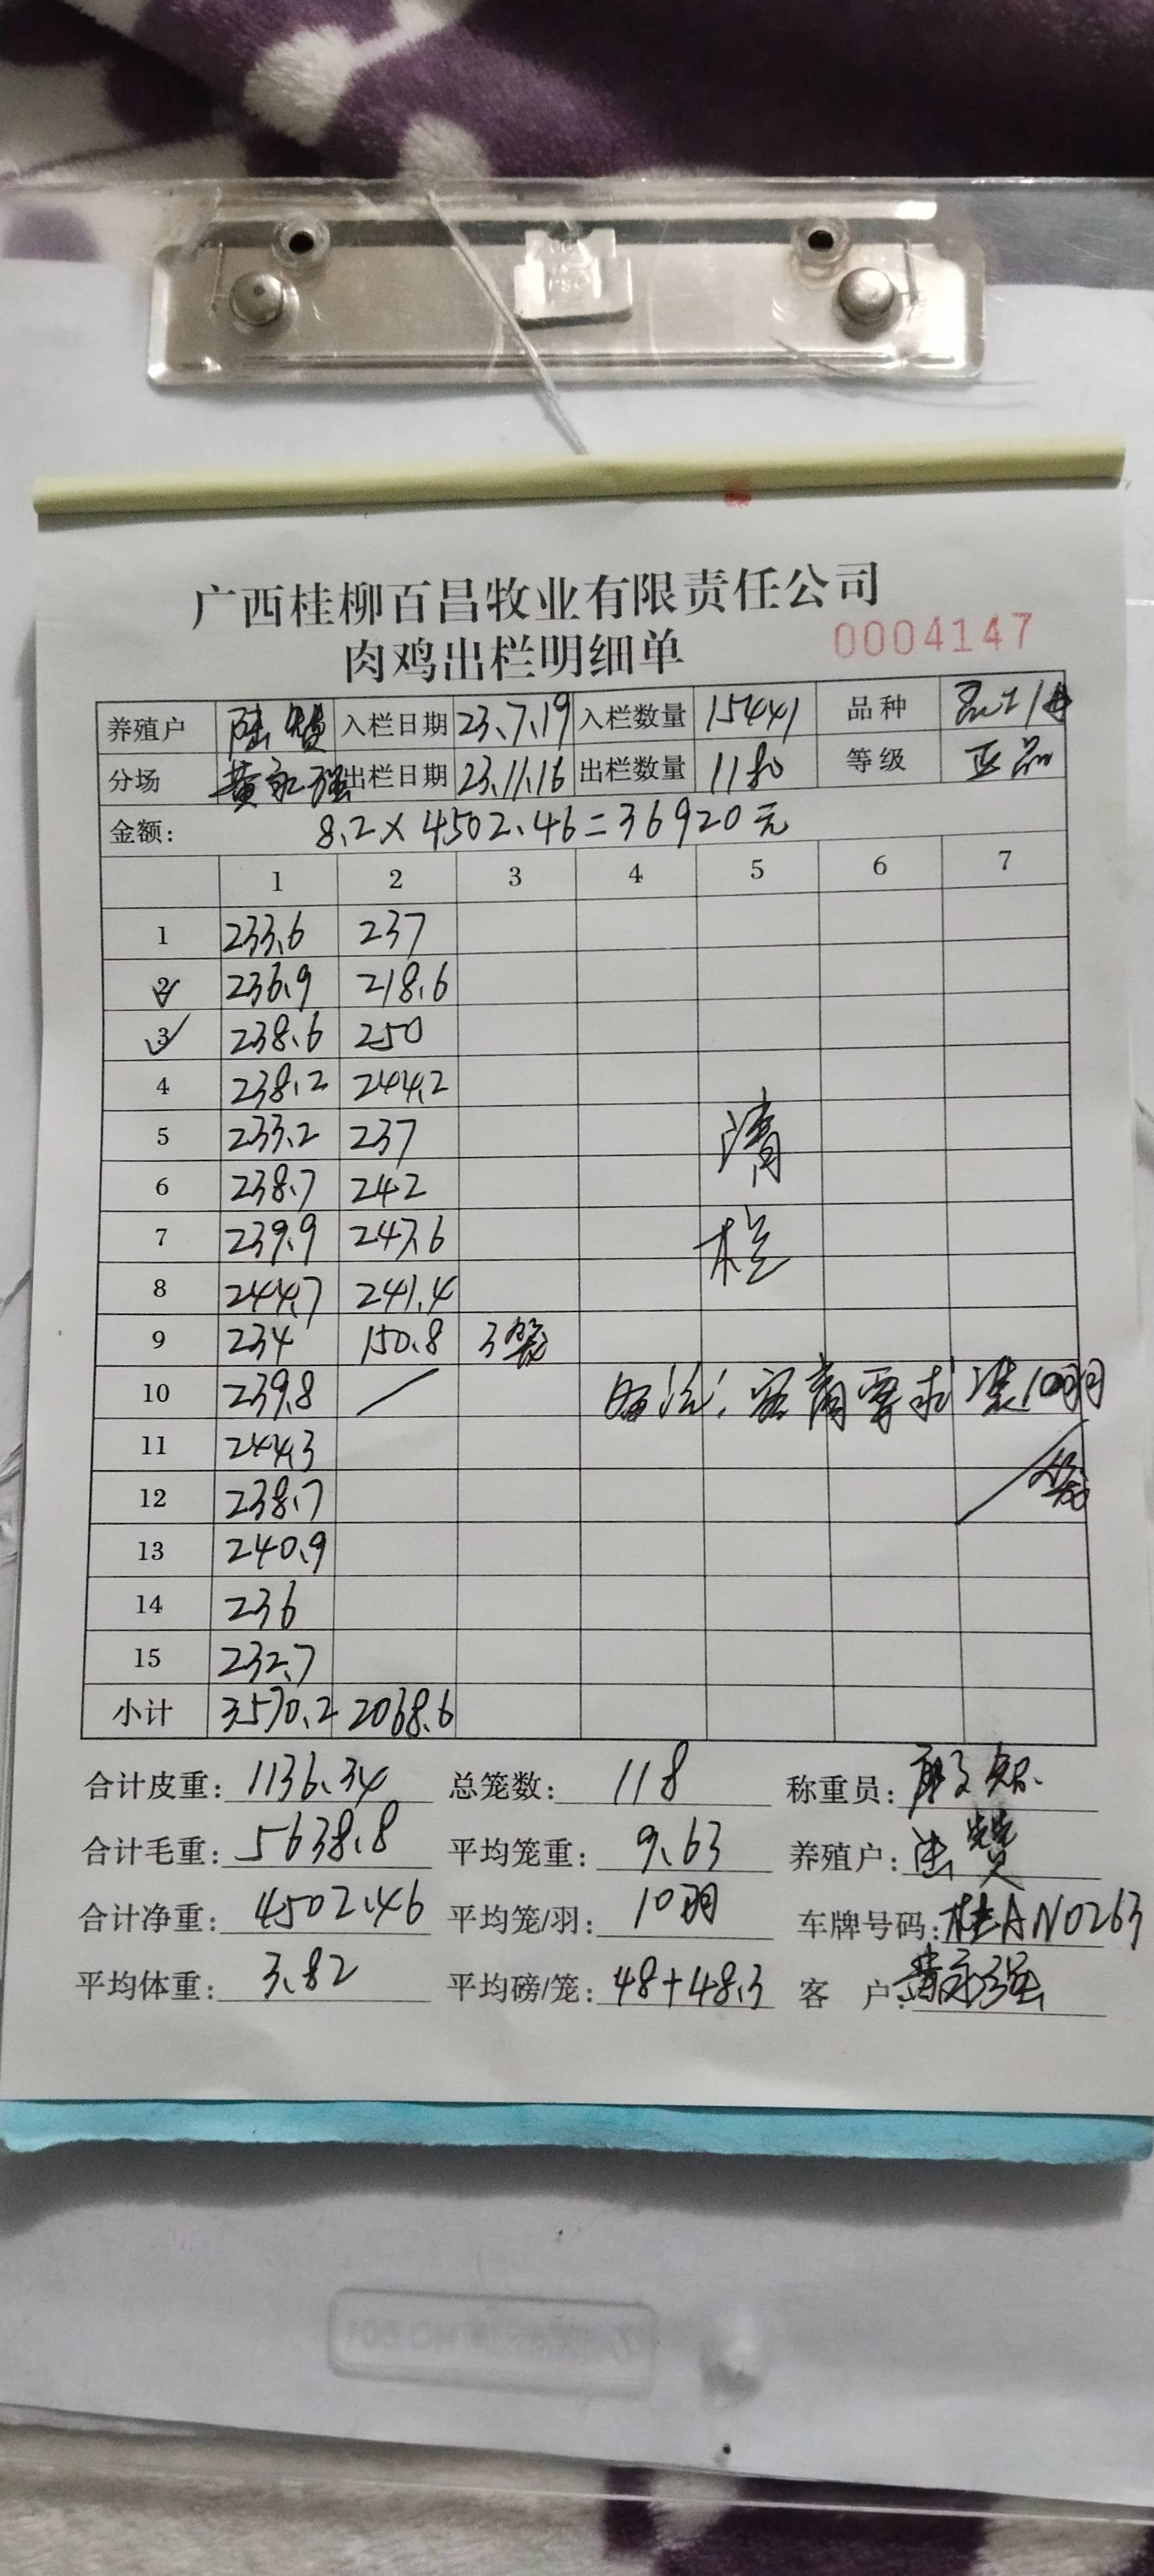 广西桂柳百昌牧业有限责任公司
肉鸡出栏明细单 0004147
养殖户 陆赞 入栏日期 23.7.19 入栏数量 15441 品种
分场 黄永强 出栏日期 23.11.16 出栏数量 1180 等级 正品
金额: 8.2×4502.46=36920元
1 2 3 4 5 6 7
1 233.6 237
2 236.9 218.6
3 238.6 250
4 238.2 244.2
5 233.2 237 清
6 238.7 242
7 239.9 247.6 栏
8 244.7 241.4
9 234 150.8 3笼
10 239.8 客商要求装10羽
11 244.3 /笼
12 238.7
13 240.9
14 236
15 232.7
小计 3570.2 2068.6
合计皮重: 1136.34 总笼数: 118 称重员:
合计毛重: 5638.8 平均笼重: 9.63 养殖户: 陆赞
合计净重: 4502.46 平均笼/羽: 10羽 车牌号码: 桂AN0263
平均体重: 3.82 平均磅/笼: 48+48.3 客 户: 黄永强